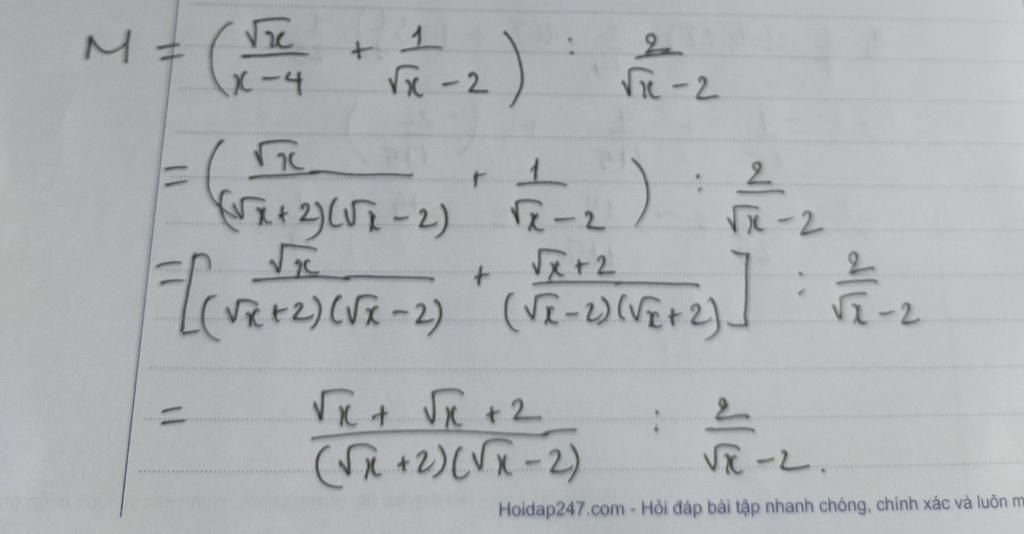 M = ( √x/(x-4) + 1/(√x-2) ) : 2/(√x-2)
= ( √x/((√x+2)(√x-2)) + 1/(√x-2) ) : 2/(√x-2)
= [ √x/((√x+2)(√x-2)) + (√x+2)/((√x-2)(√x+2)) ] : 2/(√x-2)
= (√x + √x + 2)/((√x+2)(√x-2)) : 2/(√x-2).
Hoidap247.com - Hỏi đáp bài tập nhanh chóng, chính xác và luôn